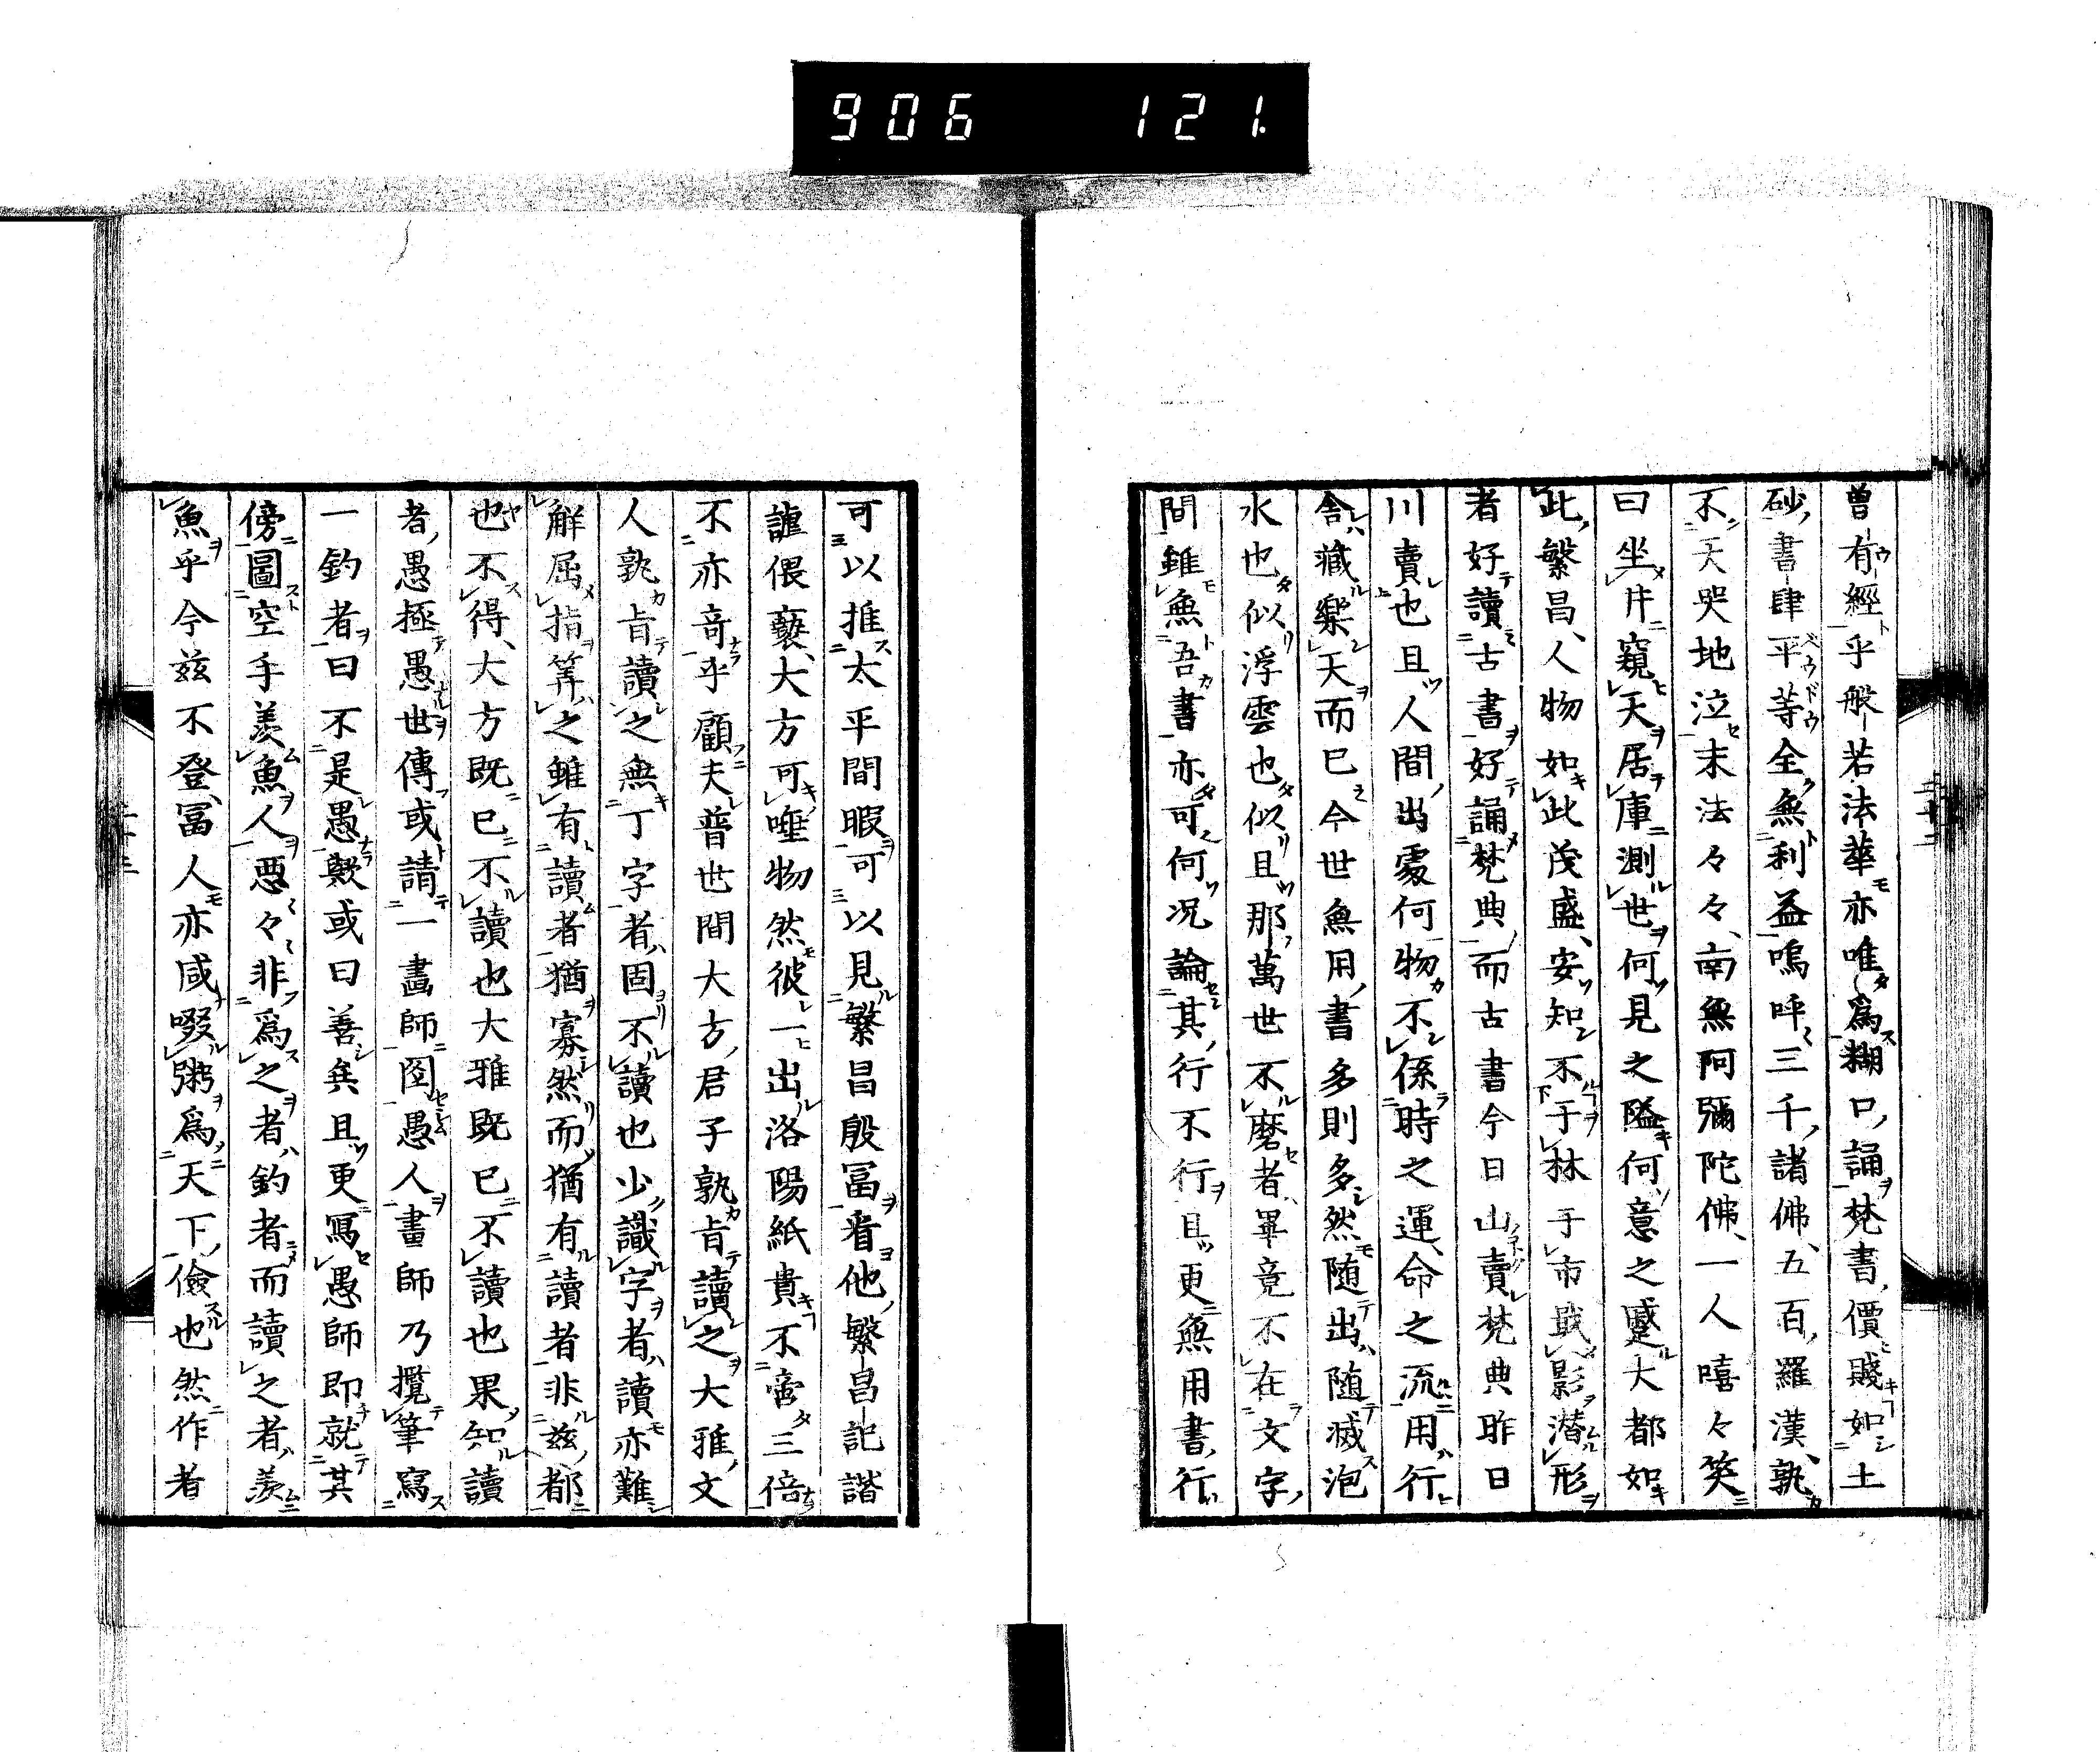 906 121.
曾有經乎般若法華亦唯爲糊口誦梵書價賤如土
砂書肆平等全無利益嗚呼三千諸佛五百羅漢孰
不天哭地泣末法々々南無阿彌陀佛一人嘻々笑
曰坐井窺天居庫測世何見之隘何意之蹙大都如
此繁昌人物如此茂盛安知不于林于市戢影潜形
者好讀古書好誦梵典而古書今日山賣梵典昨日
川賣也且人間出處何物不係時之運命之流用行
舍藏樂天而已今世無用書多則多然随出随滅泡
水也似浮雲也似且那萬世不磨者畢竟不在文字
間雖無吾書亦可何況論其行不行且更無用書行
可以推太平間暇可以見繁昌殷冨看他繁昌記諧
謔偎褻大方可唾物然彼一出洛陽紙貴不啻三倍
不亦竒乎顧夫普世間大方君子孰肯讀之大雅文
人孰肯讀之無丁字者固不讀也少識字者讀亦難
解屈指筭之雖有讀者猶寡然而猶有讀者非兹都
也不得大方既已不讀也大雅既已不讀也果知讀
者愚極愚世傳或請一畵師圖愚人畫師乃攬筆寫
一釣者曰不是愚歟或曰善矣且更寫愚師即就其
傍圖空手羨魚人惡々非爲之者釣者而讀之者羨
魚乎今兹不登冨人亦咸啜粥爲天下儉也然作者